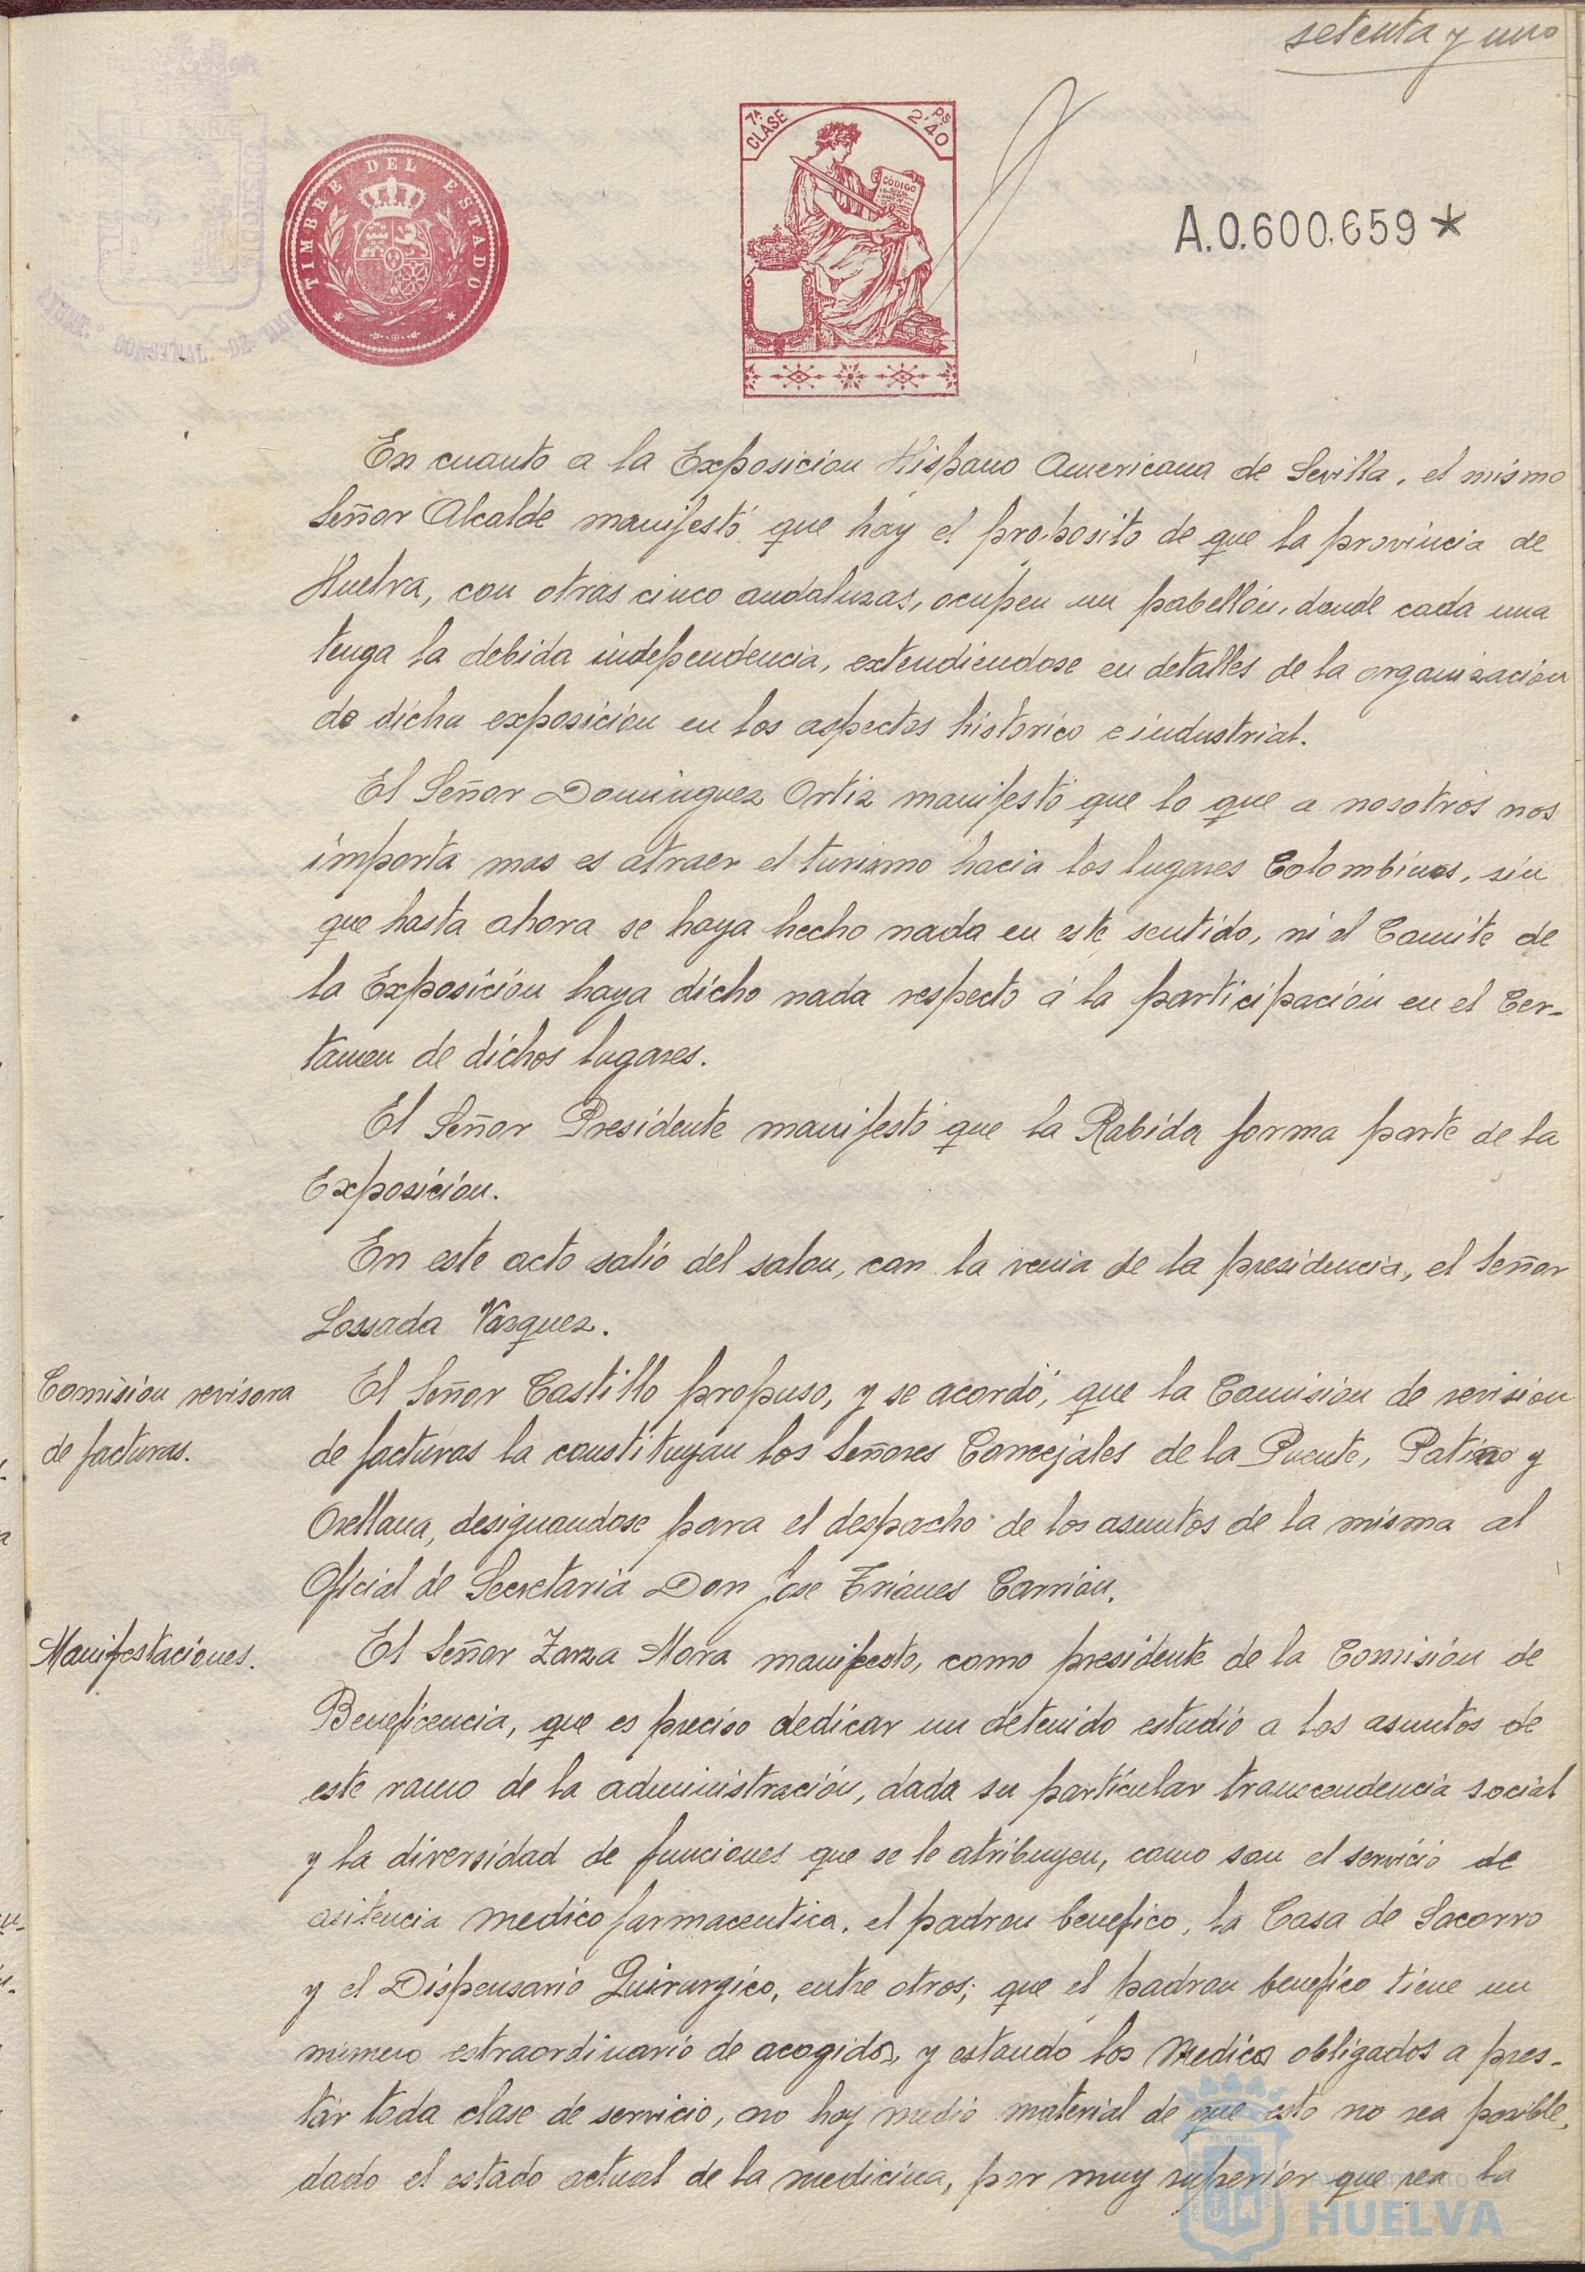 setenta y uno
TIMBRE DEL ESTADO
7ª CLASE
PS 2'40
CÓDIGO
A.0.600.659*
En cuanto a la Exposicion Hispano Americana de Sevilla, el mismo
Señor Alcalde manifestó que hay el proposito de que la provincia de
Huelva, con otras cinco andaluzas, ocupen un pabellón, donde cada una
tenga la debida independencia, extendiendose en detalles de la organización
de dicha exposición en los aspectos histórico e industrial.
El Señor Dominguez Ortiz manifestó que lo que a nosotros nos
importa mas es atraer el turismo hacia los lugares Colombinos, sin
que hasta ahora se haya hecho nada en este sentido, ni el Comite de
la Exposición haya dicho nada respecto á la participación en el Cer-
tamen de dichos lugares.
El Señor Presidente manifestó que la Rabida forma parte de la
Exposición.
En este acto salió del salon, con la venia de la presidencia, el Señor
Lossada Vazquez.
Comision revisora
de facturas.
El Señor Castillo propuso, y se acordó, que la Comision de revision
de facturas la constituyan los Señores Concejales de la Puente, Patino y
Orellana, designandose para el despacho de los asuntos de la misma al
Oficial de Secretaria Don Jose Trianes Carrión.
Manifestaciones.
El Señor Zarza Mora manifesto, como presidente de la Comisión de
Beneficencia, que es preciso dedicar un detenido estudio a los asuntos de
este ramo de la administración, dada su particular transcendencia social
y la diversidad de funciones que se le atribuyen, como son el servicio de
asitencia medico farmaceutica, el padron benefico, la Casa de Socorro
y el Dispensario Quirurgico, entre otros; que el padron benefico tiene un
numero extraordinario de acogidos, y estando los Medicos obligados a pres-
tar toda clase de servicio, no hay medio material de que esto no sea posible,
dado el estado actual de la medicina, por muy superior que sea la
HUELVA